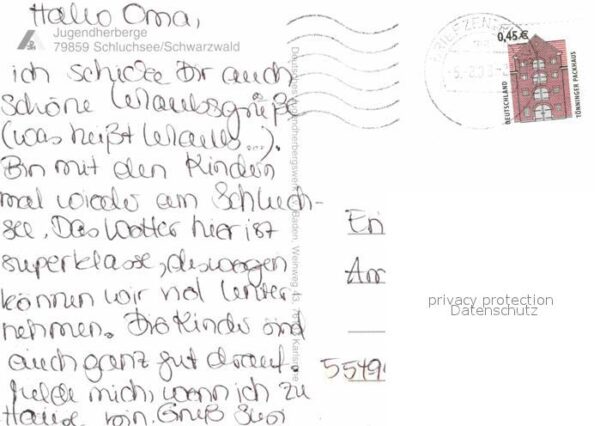 Hallo Oma,
Jugendherberge
79859 Schluchsee/Schwarzwald
ich schicke Dir auch
schöne Urlaubsgrüße
(was heißt Urlaub...).
Bin mit den Kindern
mal wieder am Schluch-
see. Das Wetter hier ist
superklasse, deswegen
können wir viel unter
nehmen. Die Kinder sind
auch ganz gut drauf.
Melde mich, wenn ich zu
Hause bin. Gruß Susi
Baden, Weinweg 43
BRIEFZENTRUM
0,45€
DEUTSCHLAND
TÖNNINGER PACKHAUS
Eri
Am
5549
privacy protection
Datenschutz